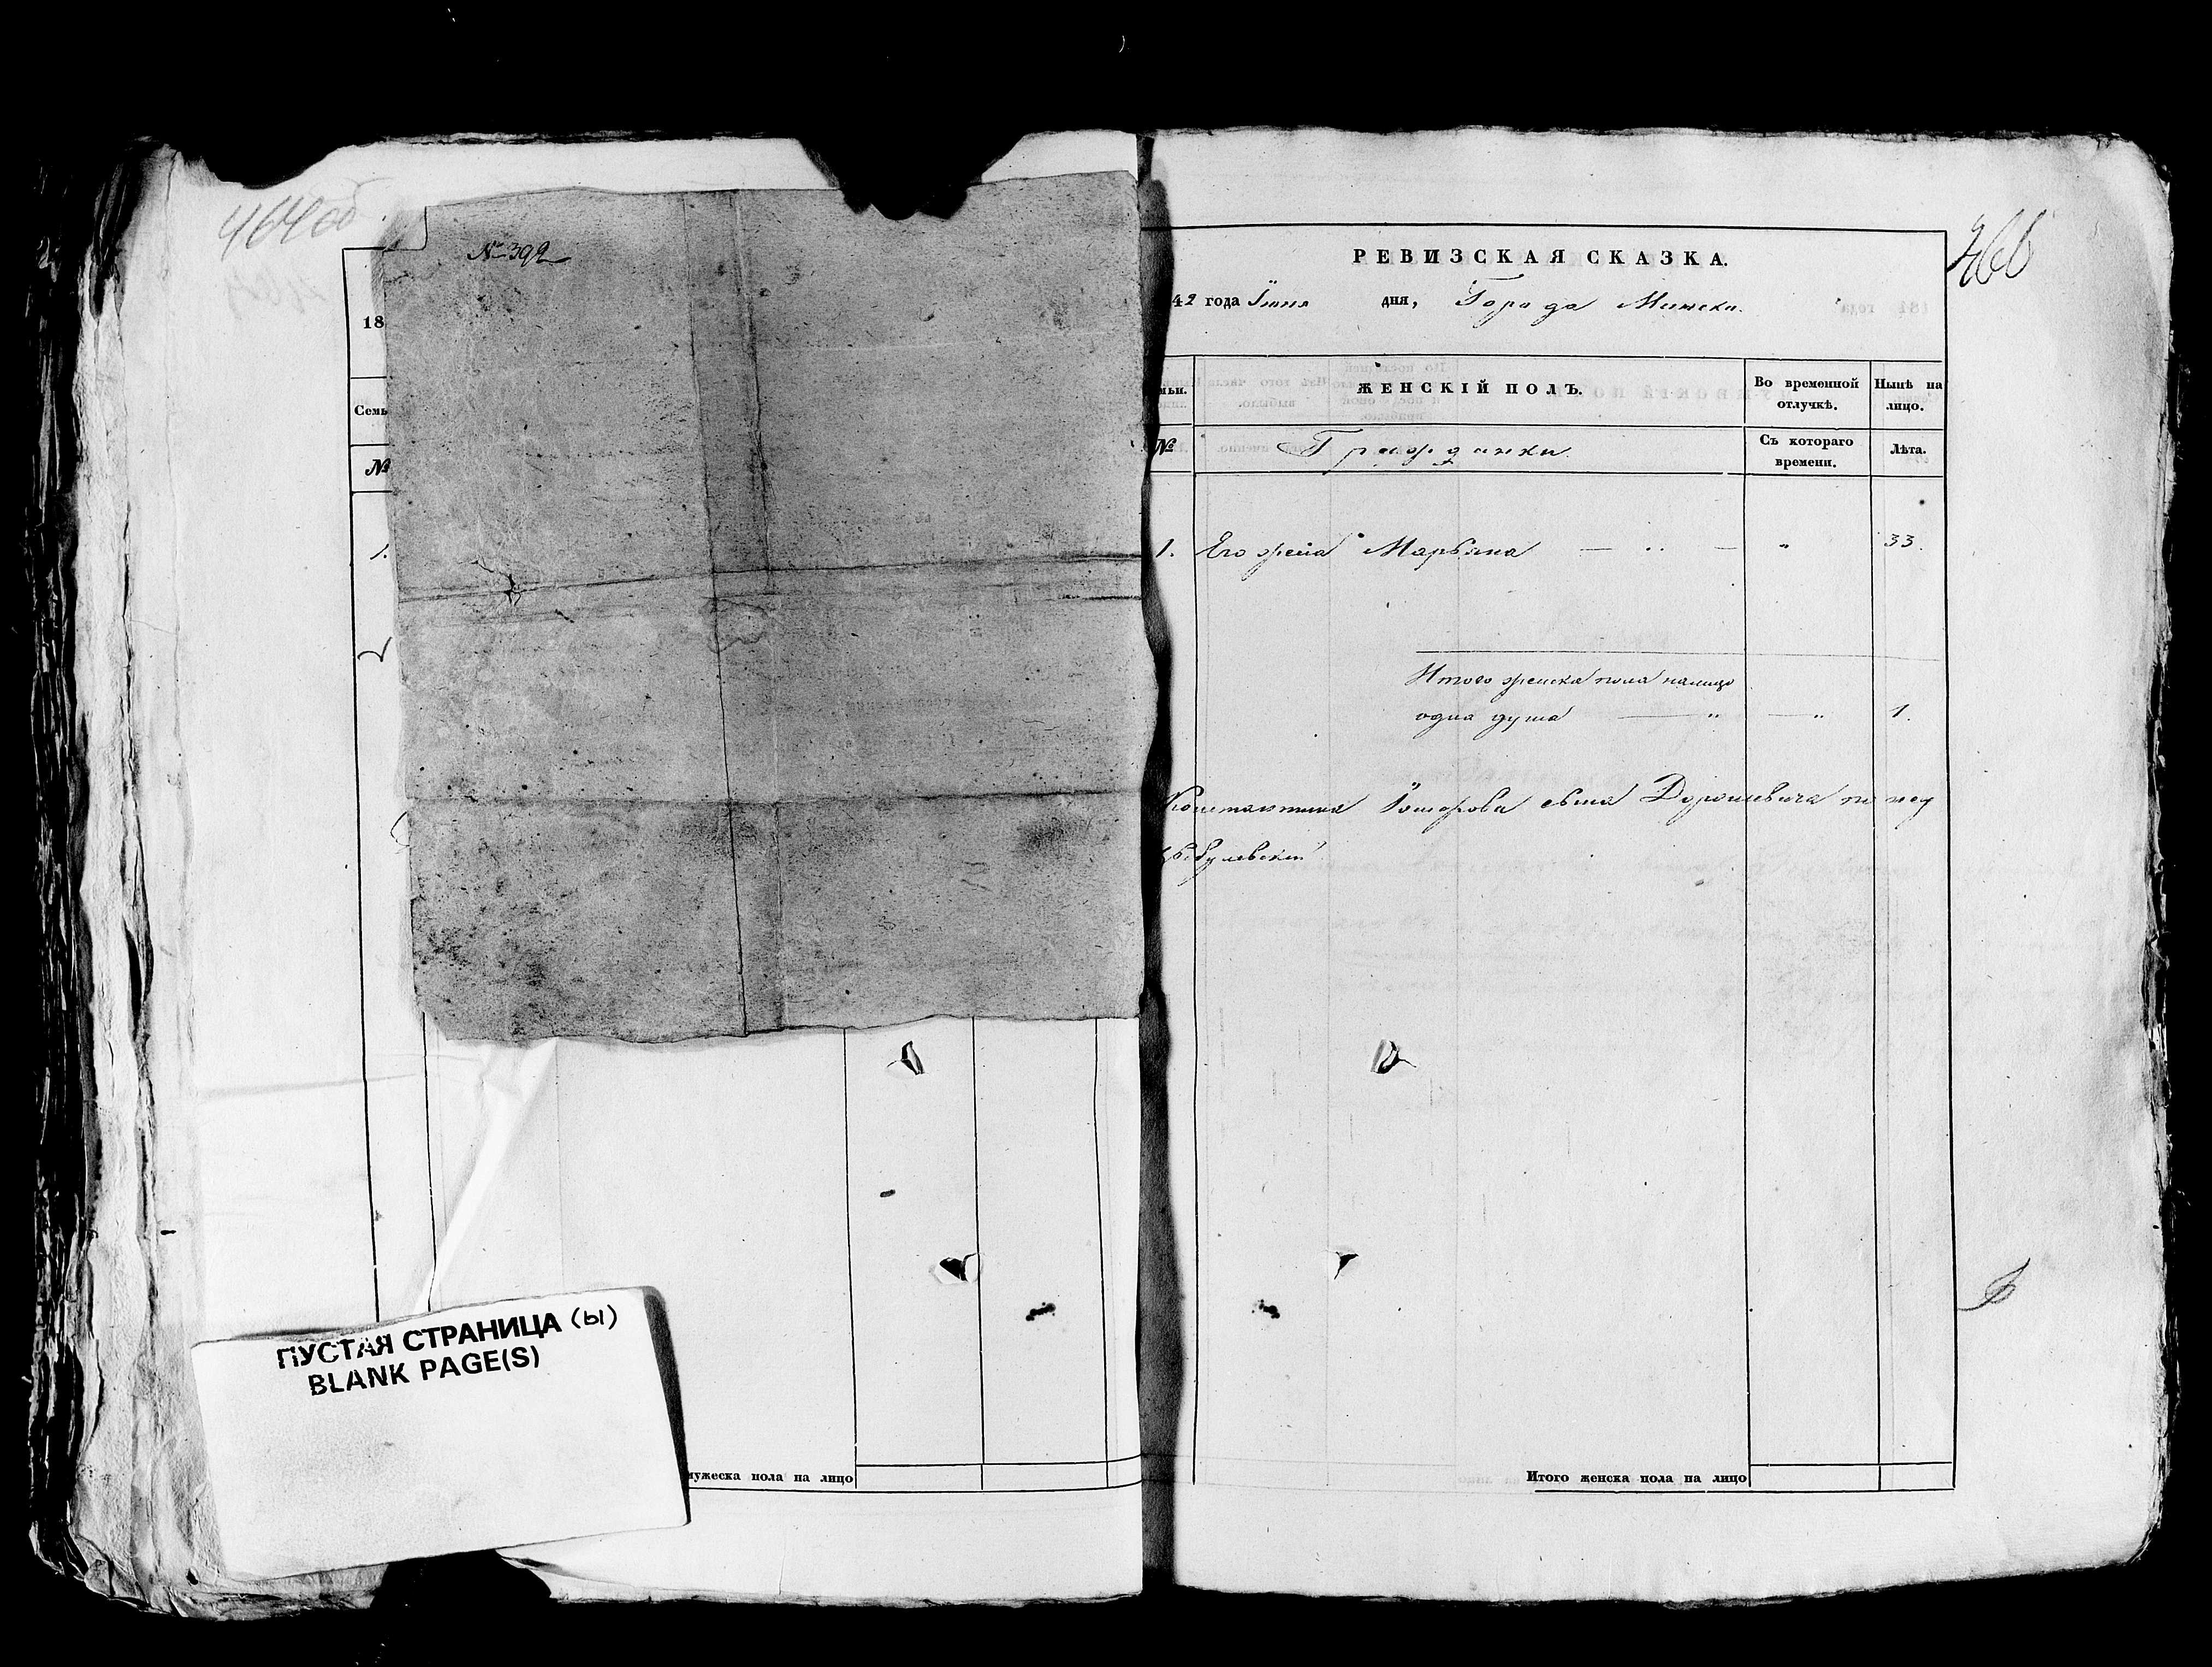 464 об
№ 392
18
Семь
№
1.
мужеска пола на лицо
ПУСТАЯ СТРАНИЦА (Ы)
BLANK PAGE(S)
466
РЕВИЗСКАЯ СКАЗКА.
42 года Іюня дня, Города Минска.
ЖЕНСКІЙ ПОЛЪ.
Во временной отлучкѣ.
Нынѣ на лицо.
№
Гражданки
Съ котораго времени.
Лѣта.
1. Его жена Марьяна — „ — „ 33.
Итого женска пола налицо
одна душа — „ — „ 1.
Константина сына Дорошевича по
Итого женска пола на лицо